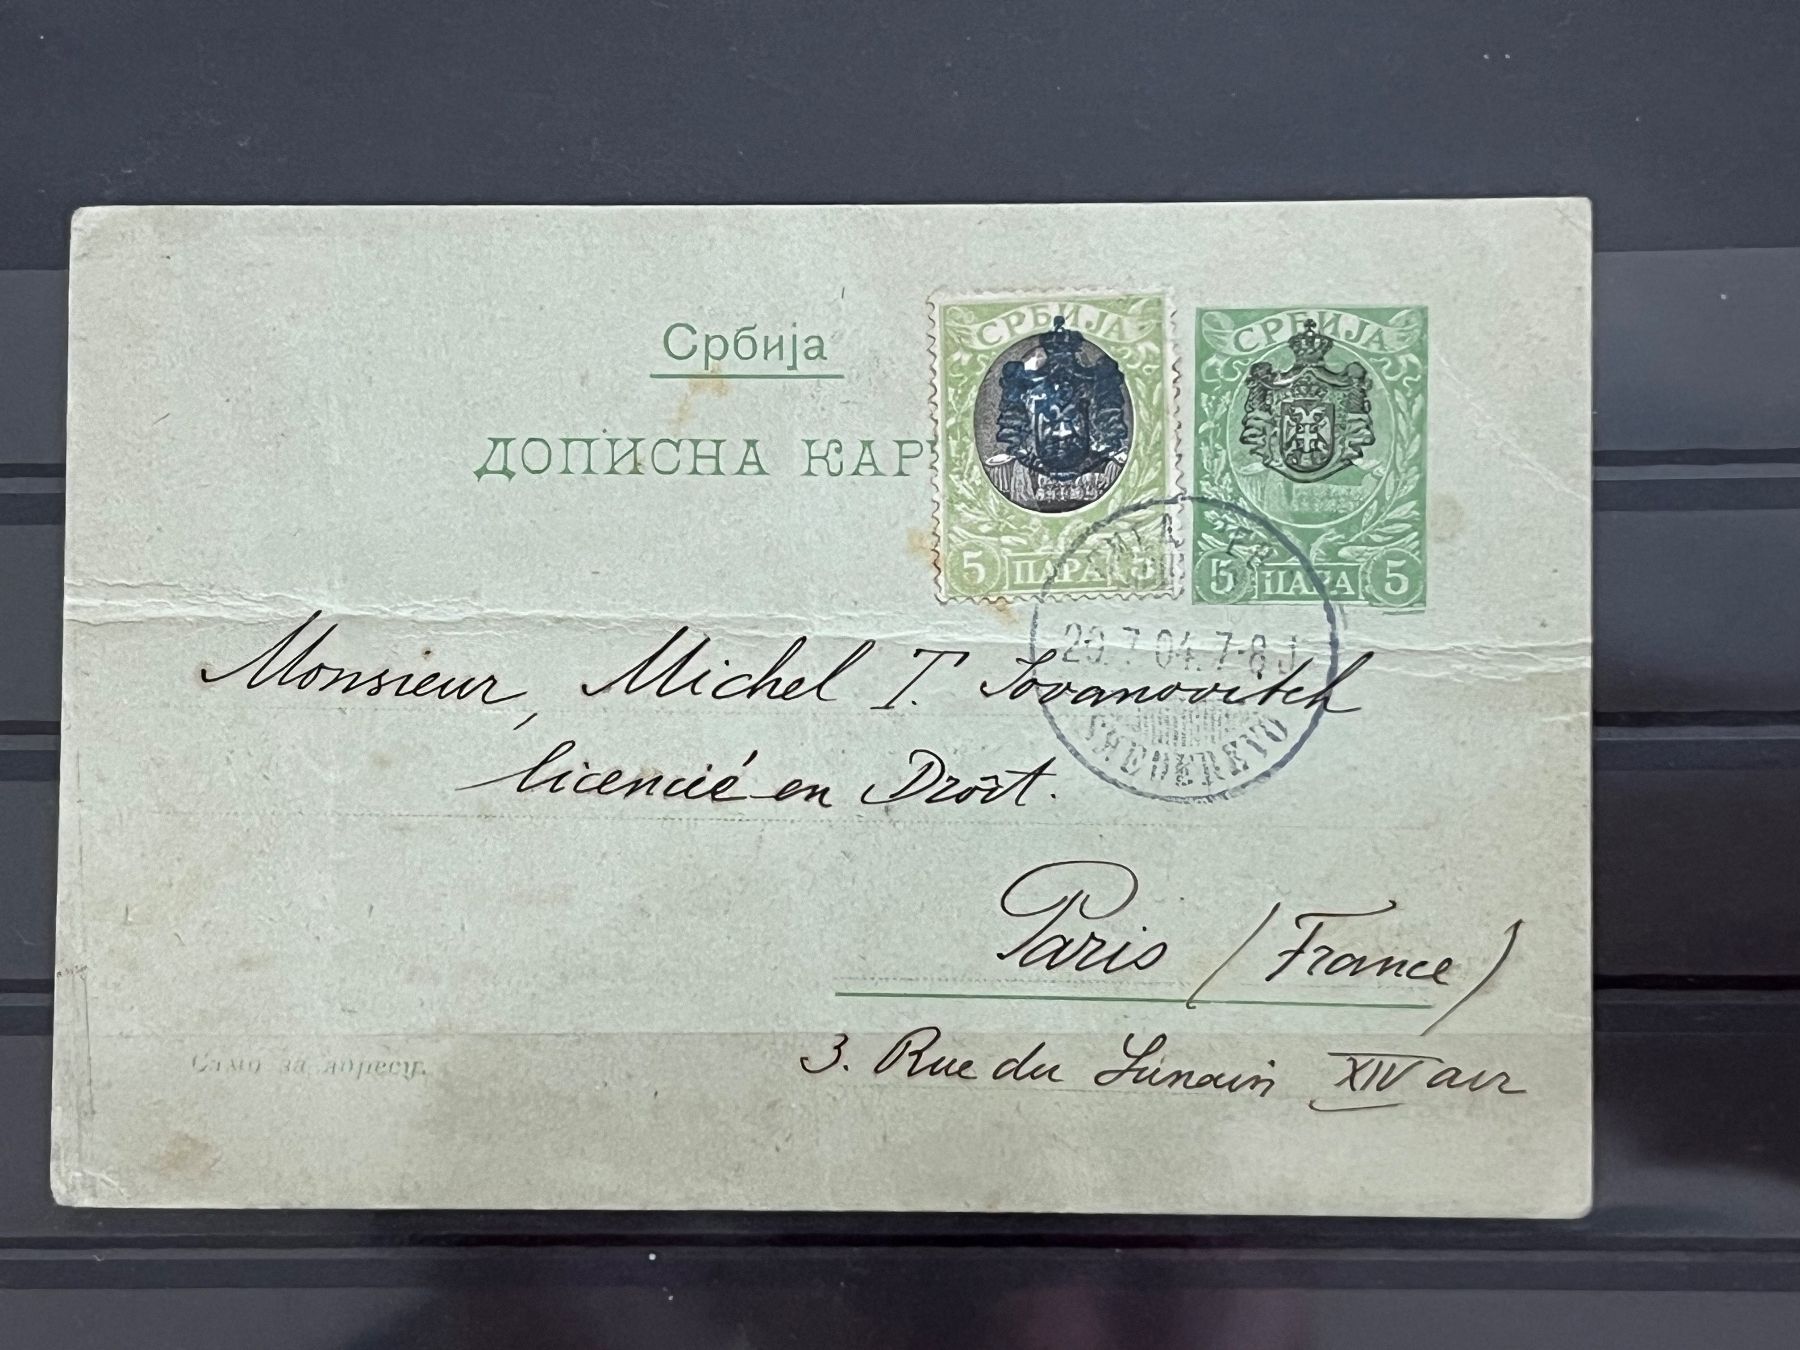 Србија
ДОПИСНА КАР
СРБИЈА
5 ПАРА 5
СРБИЈА
5 ПАРА 5
20.7.04.7-8
Monsieur, Michel T. Jovanovitch
licencié en Droit.
Paris (France)
3. Rue du Lunain XIV arr
Само за адресу.